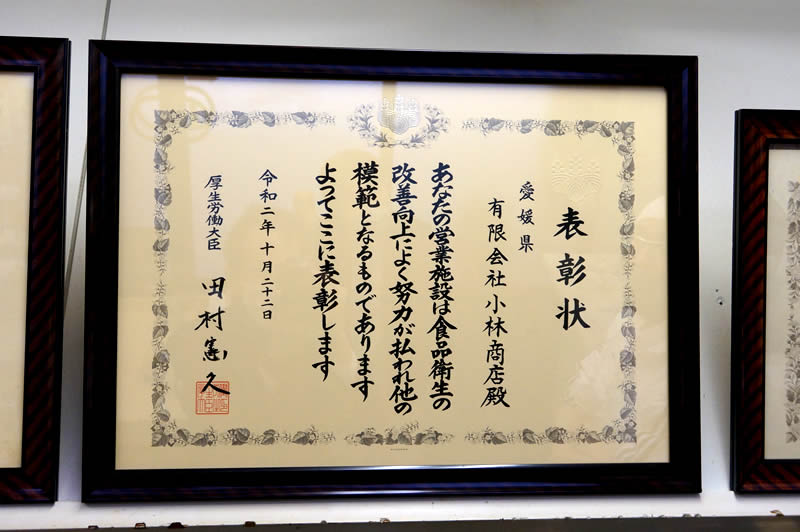 表彰状
愛媛県
有限会社小林商店殿
あなたの営業施設は食品衛生の
改善向上によく努力が払われ他の
模範となるものであります
よってここに表彰します
令和二年十月二十二日
厚生労働大臣
田村憲久